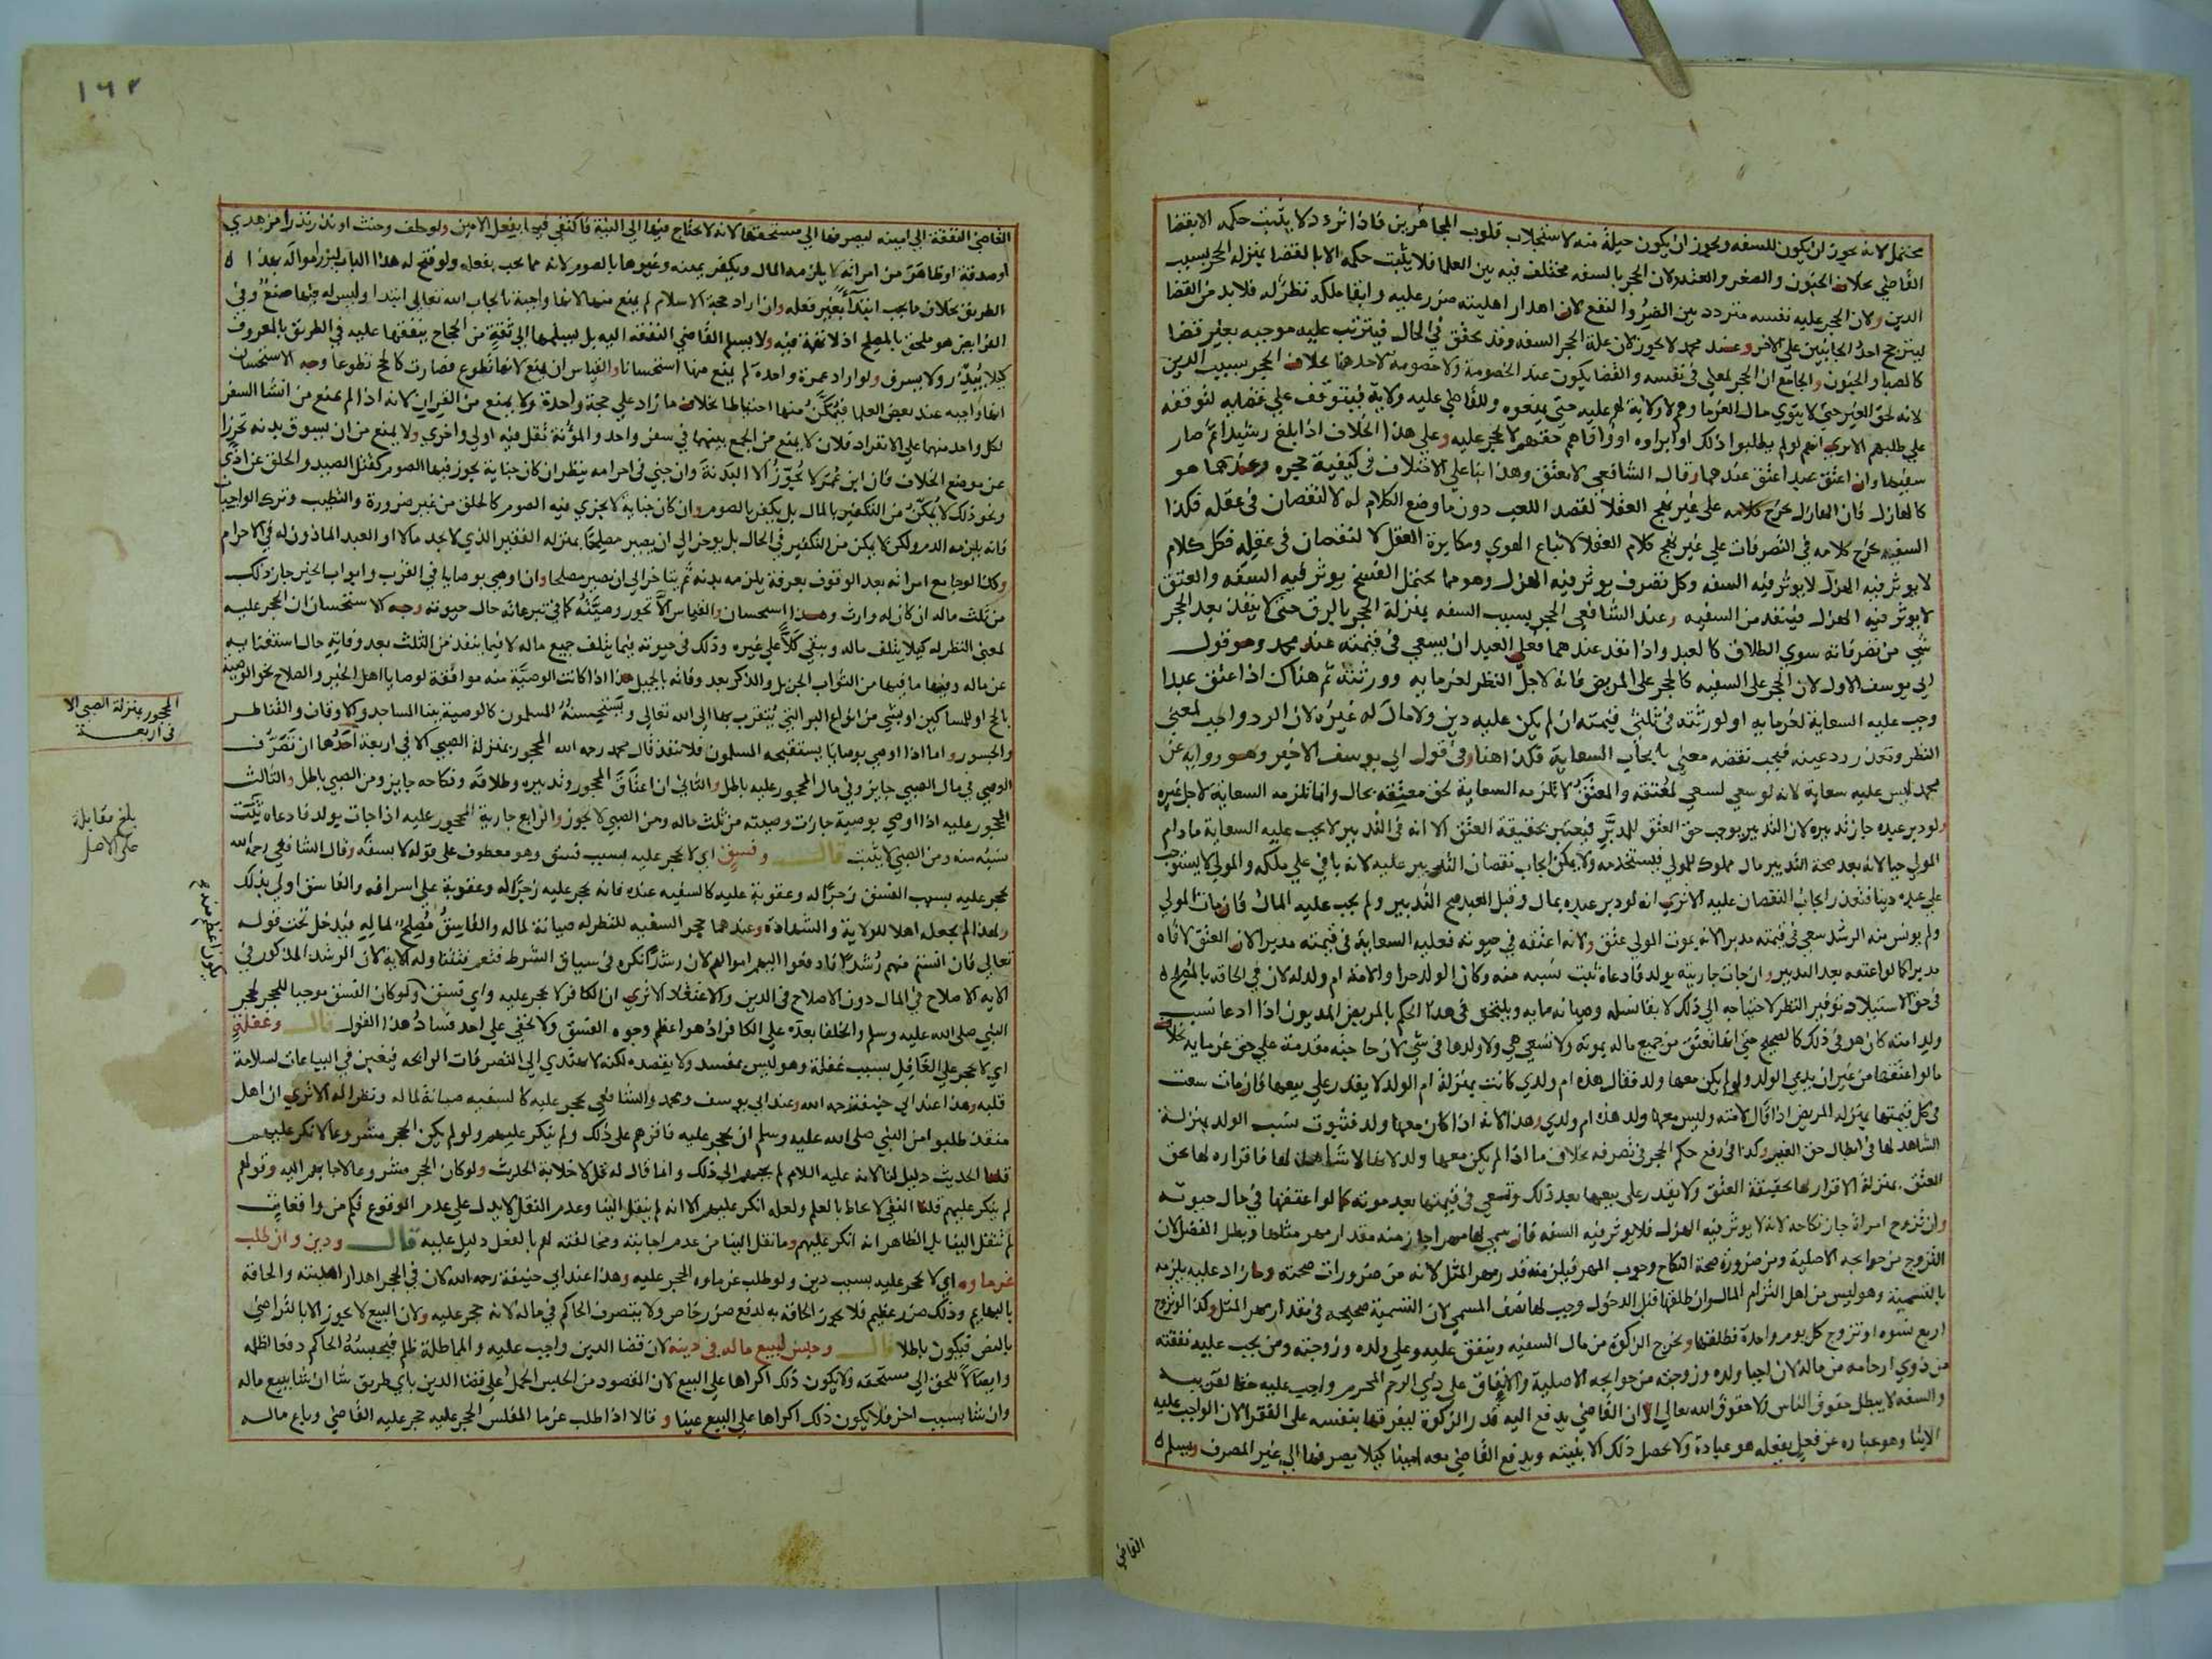 يحتمل لانه يجوز ان يكون للسفه ويجوز ان يكون حيلة منه لاستجلاب قلوب المجاهرين فاذا تردد لا يثبت حكمه الا بقضا
القاضي بخلاف الجنون والصغر والعته ولان الحجر بالسفه مختلف فيه بين العلما فلا يثبت حكمه الا بالقضا بمنزلة الحجر بسبب
الدين ولان الحجر عليه نفسه متردد بين الضرر والنفع لان اهدار اهليته ضرر عليه وابقا ملكه نظر له فلا بد من القضا
ليترجح احد الجانبين على الاخر وعند محمد لا يجوز لان علة الحجر السفه وقد تحقق في الحال فيترتب عليه موجبه بغير قضا
كالصبا والجنون والجامع ان الحجر لمعنى في نفسه والقضا يكون عند الخصومة ولا خصومة لاحد هنا بخلاف الحجر بسبب الدين
لانه لحق الغير حتى لا يتوي مال الغرما وهم لا ولاية لهم عليه حتى يمنعوه وللقاضي عليه ولاية فيتوقف على قضايه لتوقفه
على طلبهم الا ترى انهم لو لم يطلبوا ذلك او ابراوه او وافاهم حقهم لا يحجر عليه وعلى هذا الخلاف اذا بلغ رشيدا ثم صار
سفيها وان اعتق عبدا عتق عندهما وقال الشافعي لا يعتق وهذا بنا على الاختلاف في كيفية حجره وعندهما هو
كالهازل فان الهازل يخرج كلامه على غير نهج العقلا لقصد اللعب دون ما وضع الكلام له لا لنقصان في عقله فكذا
السفيه يخرج كلامه في التصرفات على غير نهج كلام العقلا لاتباع الهوي ومكابرة العقل لا لنقصان في عقله فكل كلام
لا يوثر فيه الهزل لا يوثر فيه السفه وكل تصرف يوثر فيه الهزل وهو مما يحتمل الفسخ يوثر فيه السفه والعتق
لا يوثر فيه الهزل فينفذ من السفيه وعند الشافعي الحجر بسبب السفه بمنزلة الحجر بالرق حتى لا ينفذ بعد الحجر
شي من تصرفاته سوي الطلاق كالعبد واذا نفذ عندهما فعلى العبد ان يسعي في قيمته عند محمد وهو قول
ابي يوسف الاول لان الحجر على السفيه كالحجر على المريض فانه لاجل النظر لغرمايه وورثته ثم هناك اذا اعتق عبدا
وجب عليه السعاية لغرمايه او لورثته في ثلثي قيمته ان لم يكن عليه دين ولا مال له غيره لان الرد واجب لمعنى
النظر وتعذر رد عينه فيجب نقضه معنى بايجاب السعاية فكذا هنا وفي قول ابي يوسف الاخير وهو رواية عن
محمد ليس عليه سعاية لانه لو سعي لسعي لمعتقه والمعتق لا تلزمه السعاية لحق معتقه بحال وانما تلزمه السعاية لاجل غيره
ولو دبر عبده جاز تدبيره لان التدبير يوجب حق العتق للمدبر فيعتبر بحقيقة العتق الا انه في التدبير لا يجب عليه السعاية ما دام
المولي حيا لانه بعد صحة التدبير مال مملوك للمولي فيستخدمه ولا يمكن ايجاب نقصان التدبير عليه لانه باقي على ملكه والمولي لا يستوجب
على عبده دينا فتعذر ايجاب النقصان عليه الا ترى انه لو دبر عبده بمال وقبل العبد صح التدبير ولم يجب عليه المال فان مات المولي
ولم يونس منه الرشد سعي في قيمته مدبرا لانه بموت المولي عتق ولانه اعتقه في حيوته فعليه السعاية في قيمته مدبرا لان العتق لاقاه
مدبرا كما لو اعتقه بعد التدبير وان جات جاريته بولد فادعاه ثبت نسبه منه وكان الولد حرا والامة ام ولد له لان في الحاقه بالمصلح
في حق الاستيلاد توفير النظر لاحتياجه الى ذلك لابقا نسله وصيانه مايه ويلتحق في هذا الحكم بالمريض المديون اذا ادعا نسب
ولد امته كان هو في ذلك كالصحيح حتى انها تعتق من جميع ماله بموته ولا تسعي هي ولا ولدها في شي لان حاجته مقدمة على حق غرمايه بخلاف
ما لو اعتقها من غير ان يدعي الولد ولو لم يكن معها ولد فقال هذه ام ولدي كانت بمنزلة ام الولد لا يقدر على بيعها فان مات سعت
في كل قيمتها بمنزلة المريض اذا قال لامته وليس معها ولد هذه ام ولدي وهذا لانه اذا كان معها ولد فثبوت نسب الولد بمنزلة
الشاهد لها في ابطال حق الغير وكذا في رفع حكم الحجر في تصرفه بخلاف ما اذا لم يكن معها ولد لانها لا شاهد لها فاقراره لها بحق
العتق بمنزلة الاقرار لها بحقيقة العتق ولا يقدر على بيعها بعد ذلك وتسعي في قيمتها بعد موته كما لو اعتقها في حال حيوته
وان تزوج امراة جاز نكاحه لانه لا يوثر فيه الهزل فلا يوثر فيه السفه فان سمي لها مهرا جاز منه مقدار مهر مثلها وبطل الفضل لان
التزوج من حوايجه الاصلية ومن ضرورة صحة النكاح وجوب المهر فيلزمه قدر مهر المثل لانه من ضرورات صحته وما زاد عليه يلزمه
بالتسمية وهو ليس من اهل التزام المال وان طلقها قبل الدخول وجب لها نصف المسمي لان التسمية صحيحه في مقدار مهر المثل وكذا لو تزوج
اربع نسوه او تزوج كل يوم واحدة فطلقها ويخرج الزكوة من مال السفيه وينفق عليه وعلى ولده وزوجته ومن يجب عليه نفقته
من ذوي ارحامه من ماله لان احيا ولده وزوجته من حوايجه الاصلية والانفاق على ذي الرحم المحرم واجب عليه حقا لقريبه
والسفه لا يبطل حقوق الناس ولا حقوق الله تعالى الا ان القاضي يدفع اليه قدر الزكوة ليفرقها بنفسه على الفقرا لان الواجب عليه
الايتا وهو عباره عن فعل يفعله هو عبادة ولا يحصل ذلك الا بنيته ويدفع القاضي معه امينا كيلا يصرفها الى غير المصرف ويسلم
القاضي
١٦٢
القاضي النفقة الى امينه ليصرفها الى مستحقها لانه لا يحتاج فيها الى النية فاكتفي فيها بفعل الامين ولو حلف وحنث او نذر نذرا من هدي
او صدقة او ظاهر من امراته لا يلزمه المال ويكفر يمينه وغيرها بالصوم لانه مما يجب بفعله ولو فتح له هذا الباب لبذر امواله بهذا
الطريق بخلاف ما يجب ابتدآ بغير فعله وان اراد حجة الاسلام لم يمنع منها لانها واجبة بايجاب الله تعالى ابتدا وليس له فيها صنع وفي
الفرايض هو ملحق بالمصلح اذ لا تهمة فيه ولا يسلم القاضي النفقه اليه بل يسلمها الى ثقة من الحجاج ينفقها عليه في الطريق بالمعروف
كيلا يبذر ولا يسرف ولو اراد عمرة واحدة لم يمنع منها استحسانا والقياس ان يمنع لانها تطوع فصارت كالحج تطوعا وجه الاستحسان
انها واجبه عند بعض العلما فيمكن منها احتياطا بخلاف ما زاد على حجة واحدة ولا يمنع من القران لانه اذا لم يمنع من انشا السفر
لكل واحد منهما على الانفراد فلان لا يمنع من الجمع بينهما في سفر واحد والمؤنة تقل فيه اولي واحري ولا يمنع من ان يسوق بدنه تحرزا
عن موضع الخلاف فان ابن عمر لا يجوز الا البدنة وان جني في احرامه ينظر ان كان جناية يجوز فيها الصوم كقتل الصيد والحلق عن اذي
ونحو ذلك لا يمكن من التكفير بالمال بل يكفر بالصوم وان كان جناية لا يجزي فيه الصوم كالحلق من غير ضرورة والتطيب وترك الواجبات
فانه يلزمه الدم ولكن لا يمكن من التكفير في الحال بل يوخر الى ان يصير مصلحا بمنزلة الفقير الذي لا يجد مالا او العبد الماذون له في الاحرام
وكذا لو جامع امراته بعد الوقوف بعرفة يلزمه بدنه ثم يتاخر الى ان يصير مصلحا وان اوصي بوصايا في القرب وابواب الخير جاز ذلك
من ثلث ماله ان كان له وارث وهذا استحسان والقياس الا تجوز وصيته كما في تبرعاته حال حيوته وجه الاستحسان ان الحجر عليه
لمعنى النظر له كيلا يتلف ماله ويبقي كلا على غيره وذلك في حيوته فيما يتلف جميع ماله لا فيما ينفذ من الثلث بعد وفاته حال استغنايه
عن ماله وفيها ما فيها من الثواب الجزيل والذكر بعد وفاته بالجميل هذا اذا كانت الوصية منه موافقة لوصايا اهل الخير والصلاح نحو الوصية
بالحج او للمساكين او بشي من انواع البر التي يتقرب بها الى الله تعالى ويستحسنه المسلمون كالوصية ببنا المساجد والاوقاف والقناطر
والجسور واما اذا اوصي بوصايا يستقبحه المسلمون فلا تنفذ قال محمد رحمه الله المحجور بمنزلة الصبي الا في اربعة احدها ان تصرف
الوصي في مال الصبي جايز وفي مال المحجور عليه باطل والثاني ان اعتاق المحجور وتدبيره وطلاقه ونكاحه جايز ومن الصبي باطل والثالث
المحجور عليه اذا اوصي بوصية جازت وصيته من ثلث ماله ومن الصبي لا يجوز والرابع جارية المحجور عليه اذا جات بولد فادعاه ثبت
نسبه منه ومن الصبي لا يثبت قال وفسق اي لا يحجر عليه بسبب فسق وهو معطوف على قوله لا بسفه وقال الشافعي رحمه الله
يحجر عليه بسبب الفسق زجرا له وعقوبة عليه كالسفيه عنده فانه يحجر عليه زجرا له وعقوبة على اسرافه والفاسق اولي بذلك
ولهذا لم يجعل اهلا للولاية والشهادة وعندهما حجر السفيه للنظر له صيانة لماله والفاسق مصلح لماله فيدخل تحت قوله
تعالى فان انستم منهم رشدا فادفعوا اليهم اموالهم لان رشدا نكره في سياق الشرط فتعم وله الاية لان الرشد المذكور في
الاية الاصلاح في المال دون الاصلاح في الدين والاعتقاد الا ترى ان الكافر لا يحجر عليه واي فسق ولو كان الفسق موجبا للحجر لحجر
النبي صلى الله عليه وسلم والخلفا بعده على الكافر اذ هو اعظم وجوه الفسق ولا يخفي على احد فساد هذا القول قال وغفلة
اي لا يحجر على الغافل بسبب غفلة وهو ليس بمفسد ولا يقصده لكنه لا يهتدي الى التصرفات الرابحه فيغبن في البياعات لسلامة
قلبه وهذا عند ابي حنيفة رحمه الله وعند ابي يوسف ومحمد والشافعي يحجر عليه كالسفيه صيانة لماله ونظرا له الا ترى ان اهل
منقذ طلبوا من النبي صلى الله عليه وسلم ان يحجر عليه فاقرهم على ذلك ولم ينكر عليهم ولو لم يكن الحجر مشروعا لانكر عليهم
قلنا الحديث دليل لنا لانه عليه اللام لم يجبهم الى ذلك وانما قال له قل لا خلابة الحديث ولو كان الحجر مشروعا لاجابهم اليه وقولهم
لم ينكر عليهم قلنا النفي لا يحاط بالعلم ولعله انكر عليهم الا انه لم ينقل الينا وعدم النقل لا يدل على عدم الوقوع فكم من واقعات
لم تنقل الينا بل الظاهر انه انكر عليهم وما نقل الينا من عدم اجابته ومخالفته لهم بالفعل دليل عليه قال ودين وان طلب
غرماوه اي لا يحجر عليه بسبب دين ولو طلب غرماوه الحجر عليه وهذا عند ابي حنيفة رحمه الله لان في الحجر اهدار اهليته والحاقه
بالبهايم وذلك ضرر عظيم فلا يجوز الحاقه به لدفع ضرر خاص ولا يتصرف الحاكم في ماله لانه حجر عليه ولان البيع لا يجوز الا بالتراضي
بالنص فيكون باطلا قال وحبس ليبيع ماله في دينه لان قضا الدين واجب عليه والمماطلة ظلم فيحبسه الحاكم دفعا لظلمه
وايصالا للحق الى مستحقه ولا يكون ذلك اكراها على البيع لان المقصود من الحبس الحمل على قضا الدين باي طريق شا ان شا ببيع ماله
وان شا بسبب اخر فلا يكون ذلك اكراها على البيع عينا وقالا اذا طلب غرما المفلس الحجر عليه حجر عليه القاضي وباع ماله
المحجور بمنزلة الصبي الا
في اربعة
بلغ مقابلة
على الاصل